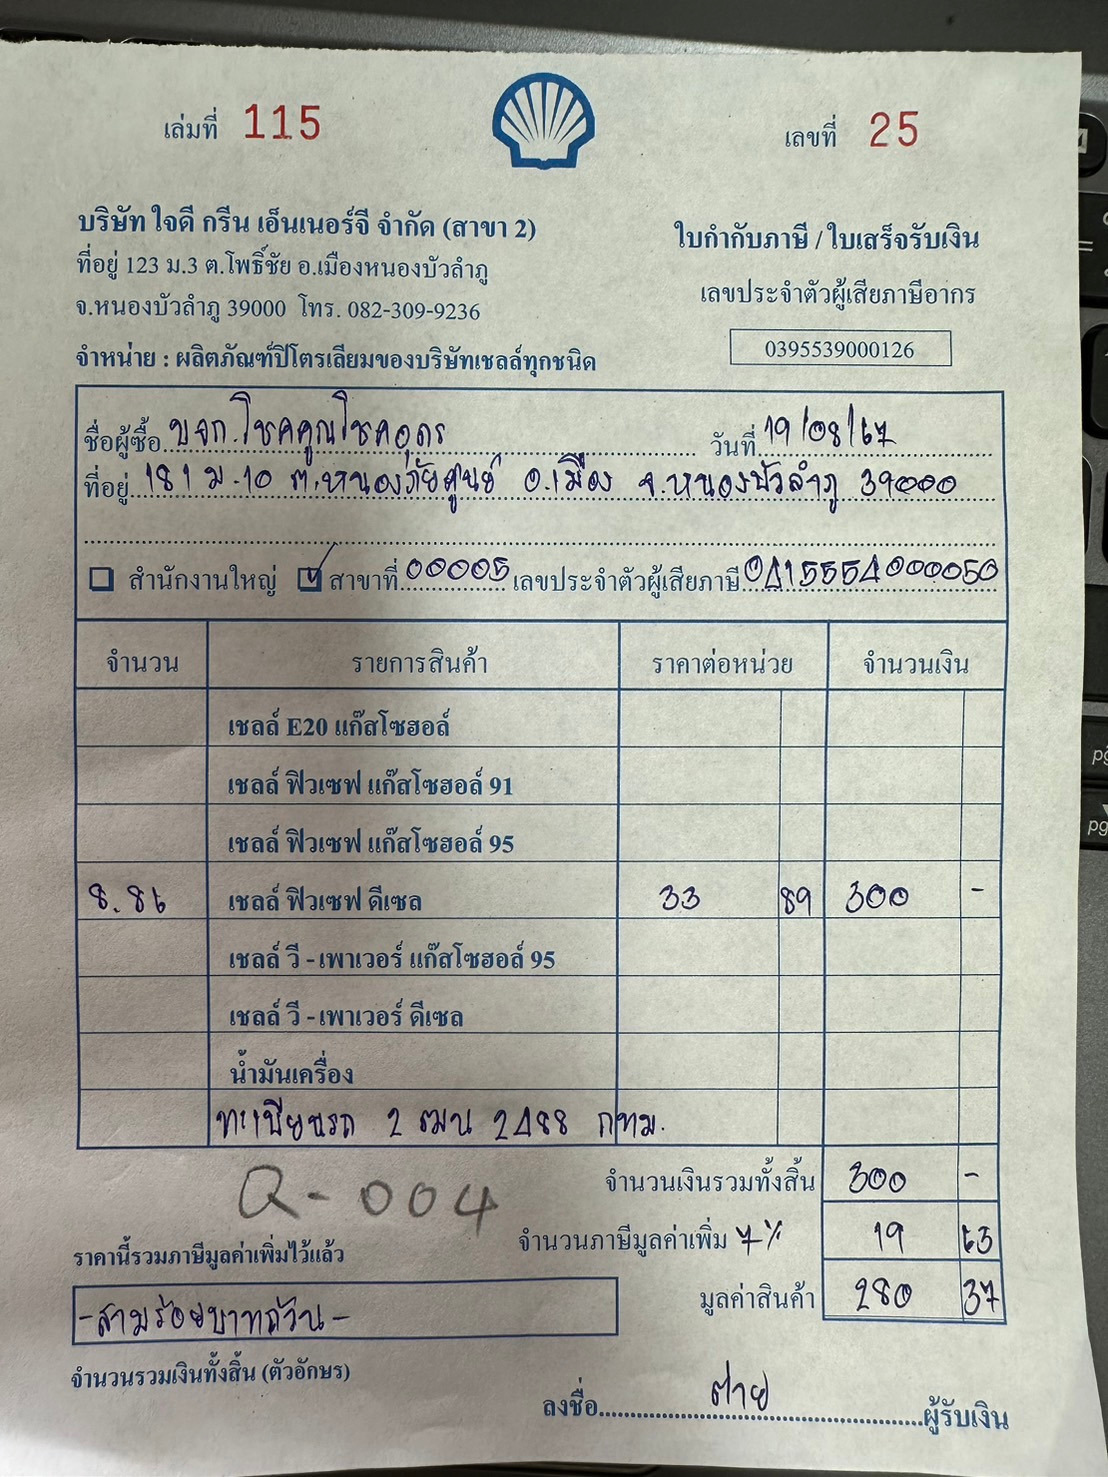 เล่มที่ 115
เลขที่ 25
บริษัท ใจดี กรีน เอ็นเนอร์จี จำกัด (สาขา 2)
ใบกำกับภาษี / ใบเสร็จรับเงิน
ที่อยู่ 123 ม.3 ต.โพธิ์ชัย อ.เมืองหนองบัวลำภู
เลขประจำตัวผู้เสียภาษีอากร
จ.หนองบัวลำภู 39000 โทร. 082-309-9236
0395539000126
จำหน่าย : ผลิตภัณฑ์ปิโตรเลียมของบริษัทเชลล์ทุกชนิด
ชื่อผู้ซื้อ บจก.โชคคูณโชคอุดร วันที่ 19/08/67
ที่อยู่ 181 ม.10 ต.หนองภัยศูนย์ อ.เมือง จ.หนองบัวลำภู 39000
สำนักงานใหญ่ สาขาที่ 00005 เลขประจำตัวผู้เสียภาษี 0415554000050
จำนวน รายการสินค้า ราคาต่อหน่วย จำนวนเงิน
เชลล์ E20 แก๊สโซฮอล์
เชลล์ ฟิวเซฟ แก๊สโซฮอล์ 91
เชลล์ ฟิวเซฟ แก๊สโซฮอล์ 95
8.86 เชลล์ ฟิวเซฟ ดีเซล 33 89 300 -
เชลล์ วี - เพาเวอร์ แก๊สโซฮอล์ 95
เชลล์ วี - เพาเวอร์ ดีเซล
น้ำมันเครื่อง
ทะเบียนรถ 2 ฒน 2488 กทม.
จำนวนเงินรวมทั้งสิ้น 300 -
Q-004
จำนวนภาษีมูลค่าเพิ่ม 7% 19 63
ราคานี้รวมภาษีมูลค่าเพิ่มไว้แล้ว
มูลค่าสินค้า 280 37
-สามร้อยบาทถ้วน-
จำนวนรวมเงินทั้งสิ้น (ตัวอักษร)
ลงชื่อ ต่าย ผู้รับเงิน